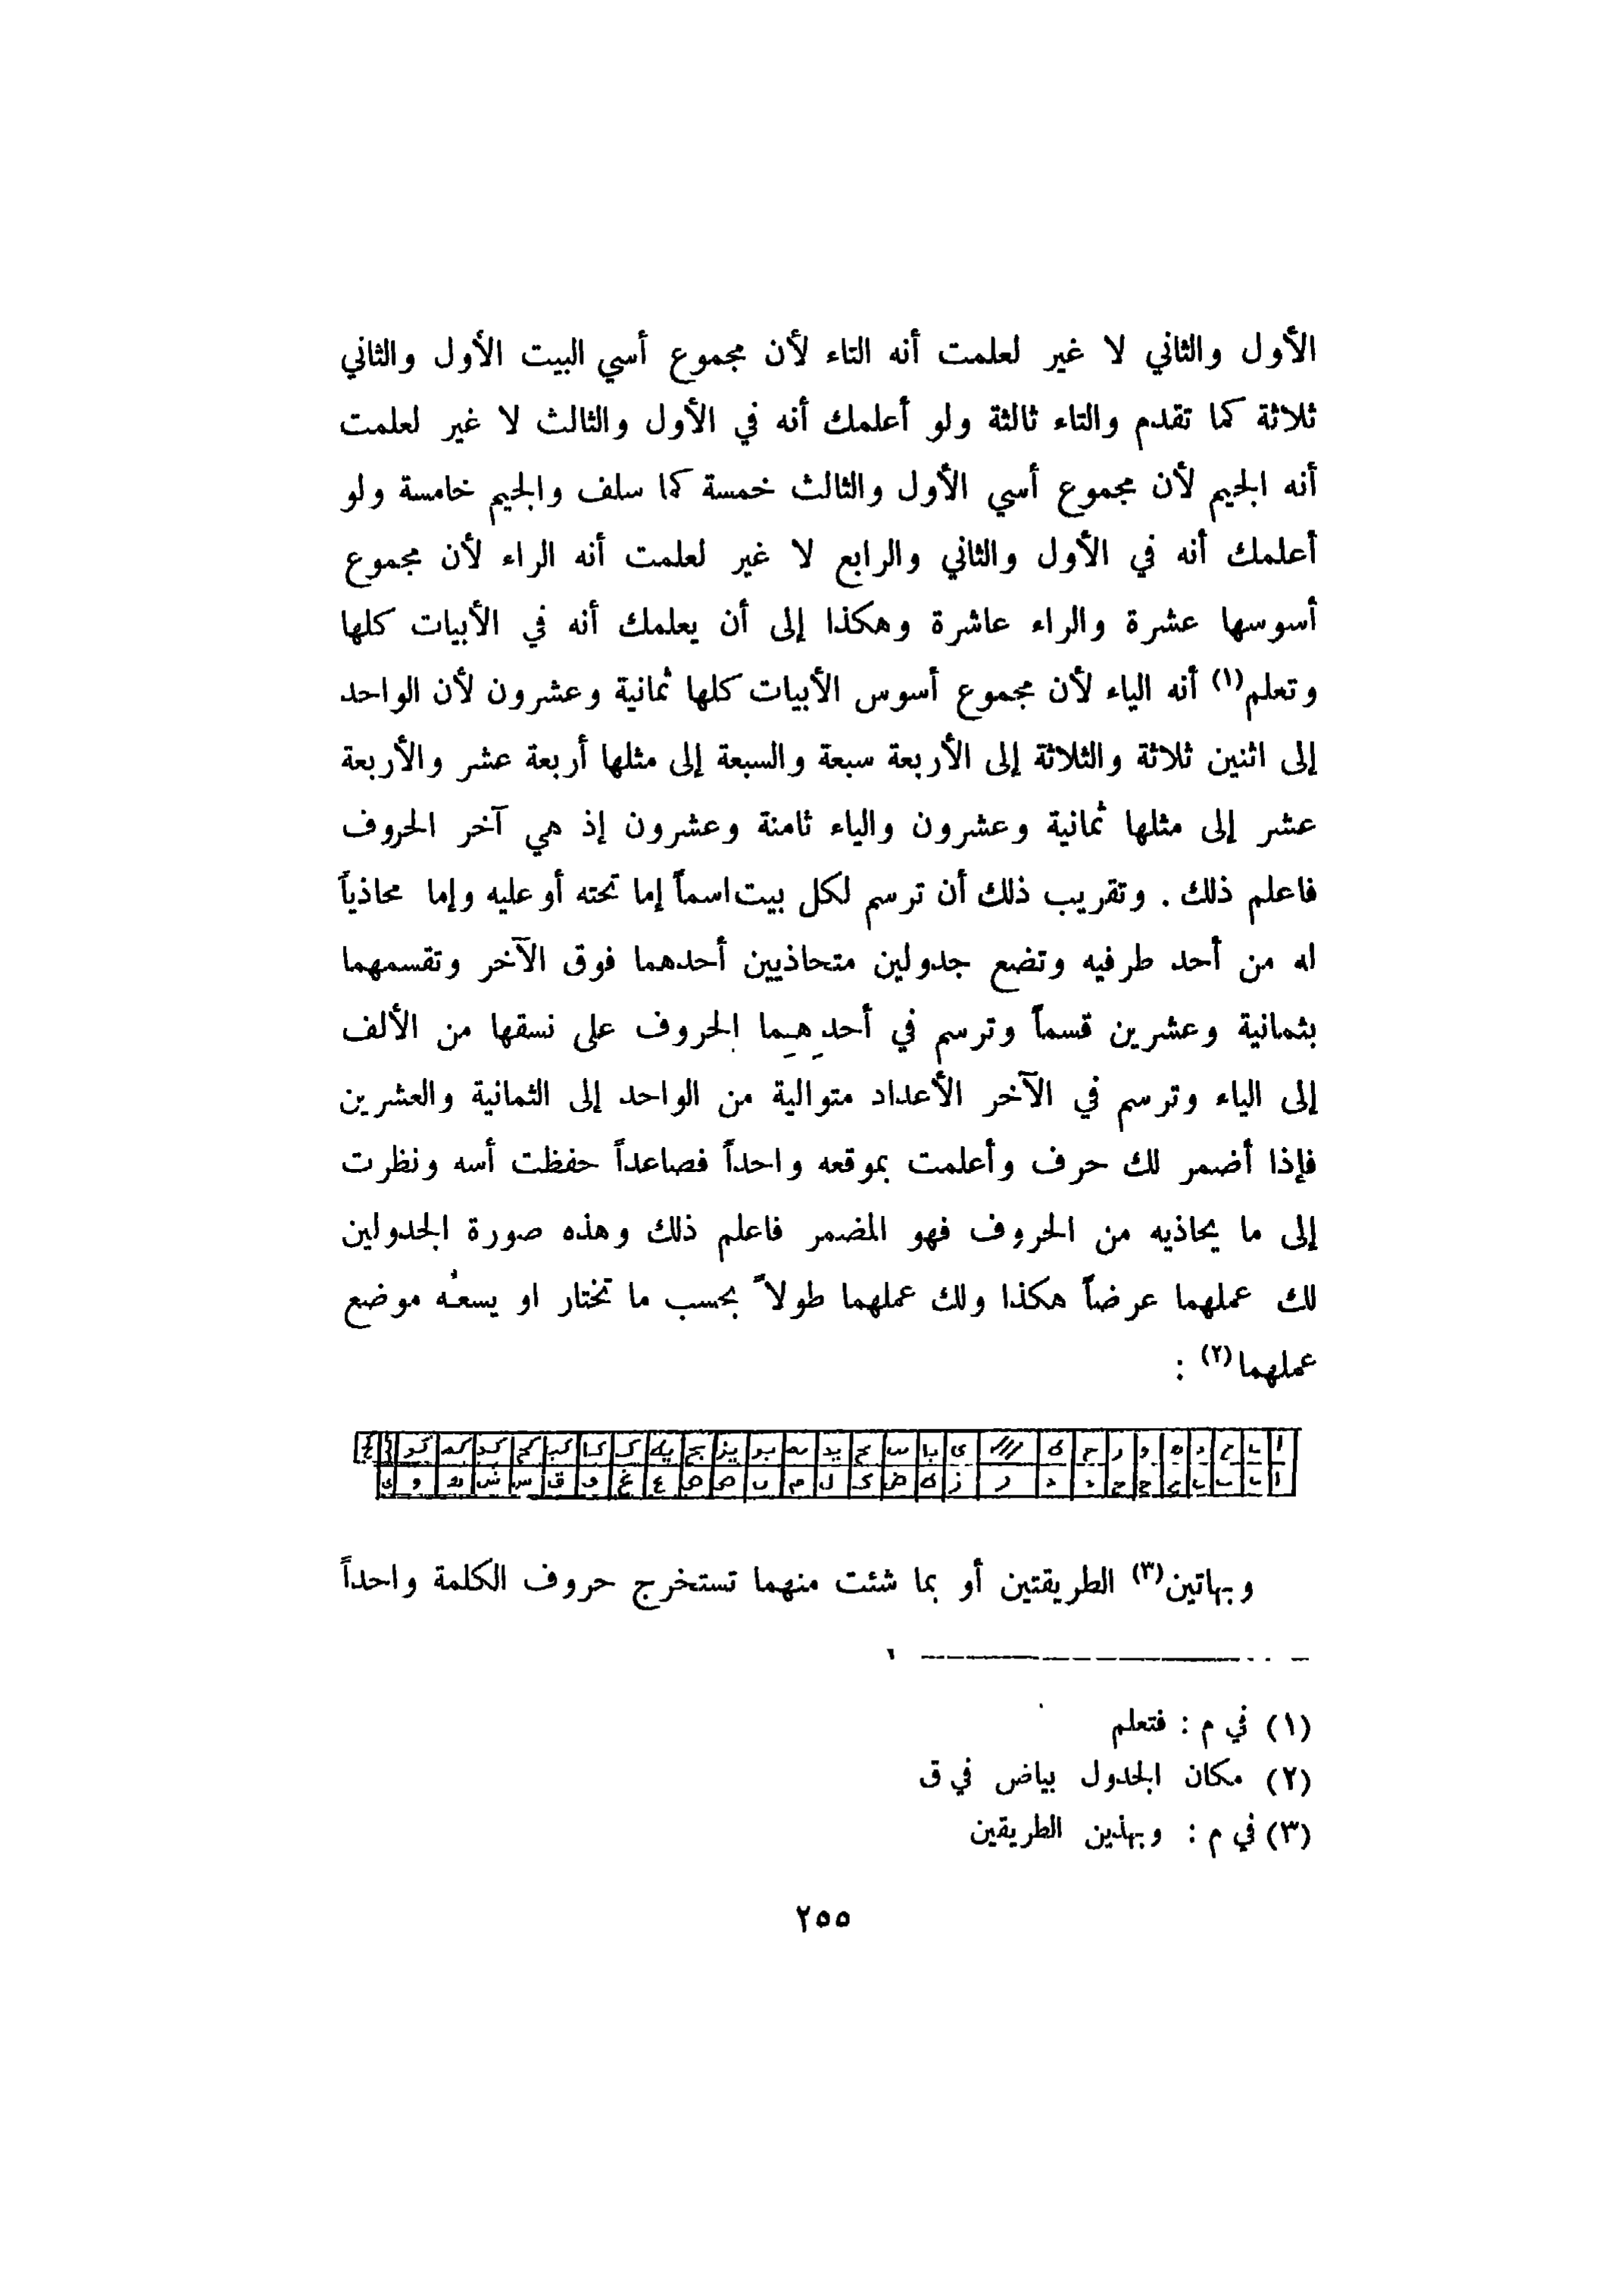 الأول والثاني لا غير لعلمت أنه التاء لأن مجموع أسي البيت الأول والثاني
ثلاثة كما تقدم والتاء ثالثة ولو أعلمك أنه في الأول والثالث لا غير لعلمت
أنه الجيم لأن مجموع أسي الأول والثالث خمسة كما سلف والجيم خامسة ولو
أعلمك أنه في الأول والثاني والرابع لا غير لعلمت أنه الراء لأن مجموع
أسوسها عشرة والراء عاشرة وهكذا إلى أن يعلمك أنه في الأبيات كلها
وتعلم(١) أنه الياء لأن مجموع أسوس الأبيات كلها ثمانية وعشرون لأن الواحد
إلى اثنين ثلاثة والثلاثة إلى الأربعة سبعة والسبعة إلى مثلها أربعة عشر والأربعة
عشر إلى مثلها ثمانية وعشرون والياء ثامنة وعشرون إذ هي آخر الحروف
فاعلم ذلك . وتقريب ذلك أن ترسم لكل بيت اسماً إما تحته أو عليه وإما محاذياً
له من أحد طرفيه وتضع جدولين متحاذيين أحدهما فوق الآخر وتقسمهما
بثمانية وعشرين قسماً وترسم في أحدهِمِا الحروف على نسقها من الألف
إلى الياء وترسم في الآخر الأعداد متوالية من الواحد إلى الثمانية والعشرين
فإذا أضمر لك حرف وأعلمت بموقعه واحداً فصاعداً حفظت أسه ونظرت
إلى ما يحاذيه من الحروف فهو المضمر فاعلم ذلك وهذه صورة الجدولين
لك عملهما عرضاً هكذا ولك عملهما طولاً بحسب ما تختار او يسعه موضع
عملهما(٢) :
وبهاتين(٣) الطريقتين أو بما شئت منهما تستخرج حروف الكلمة واحداً
(١) في م : فتعلم
(٢) مكان الجدول بياض في ق
(٣) في م : وبهذين الطريقين
٢٥٥